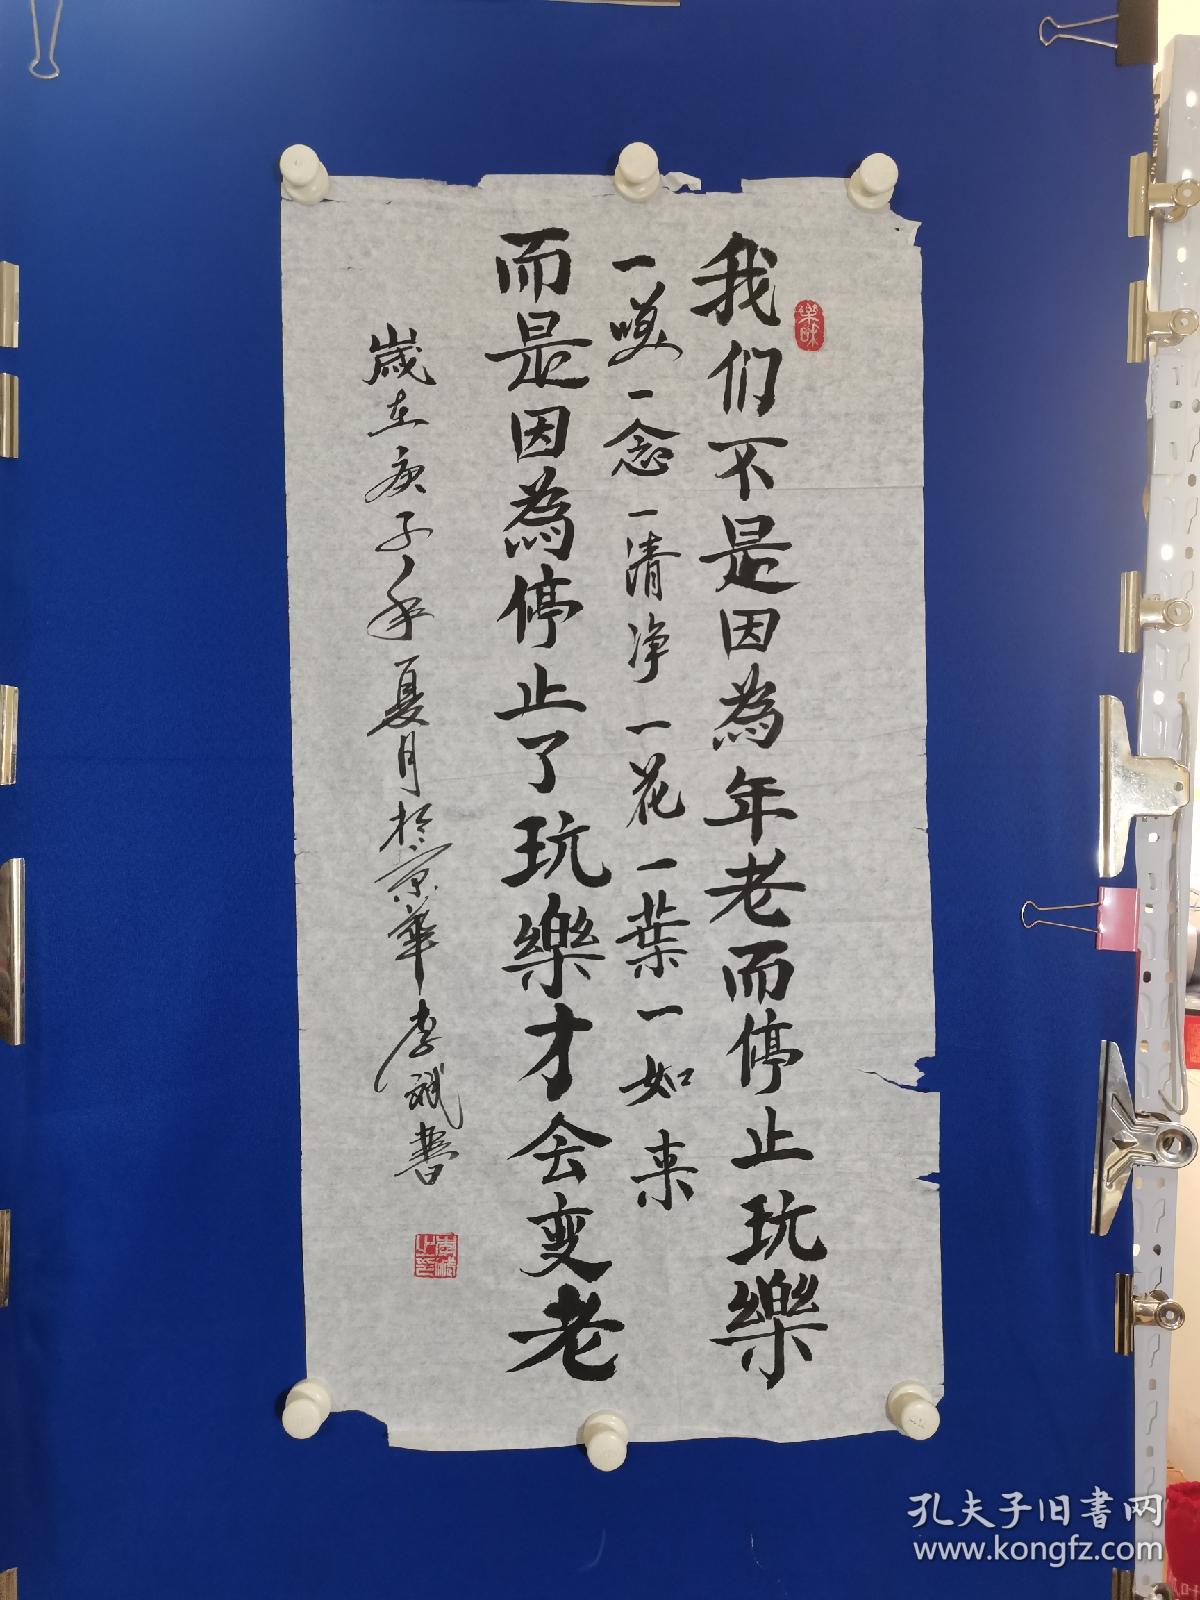 我们不是因為年老而停止玩樂
一嘆一念一清净一花一葉一如来
而是因為停止了玩樂才会变老
歲在庚子年夏月於京華李斌書
孔夫子旧書网
www.kongfz.com